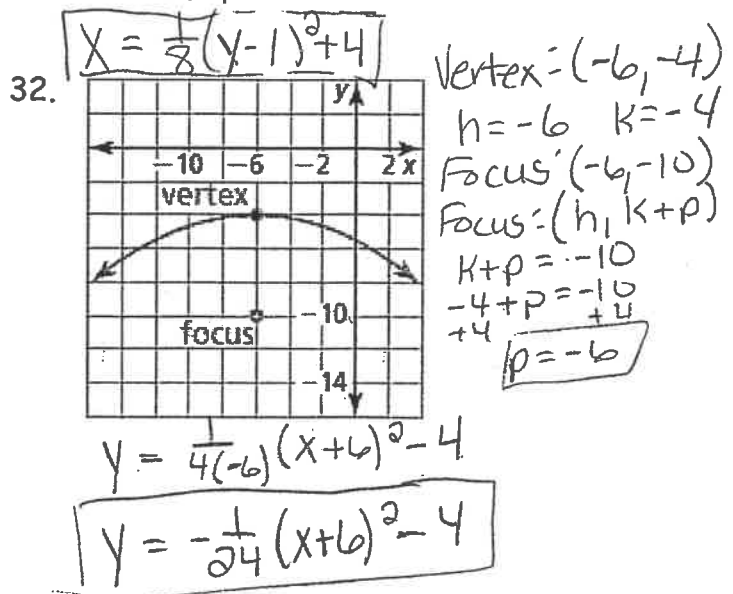 X = 1/8 (y-1)²+4
32.
y
-10 -6 -2 2 x
vertex
-10
focus
-14
Vertex: (-6, -4)
h = -6 K = -4
Focus: (-6, -10)
Focus: (h, K+p)
K+p = -10
-4+p = -10
+4 +4
p = -6
y = 1/4(-6) (x+6)² - 4
y = -1/24 (x+6)² - 4